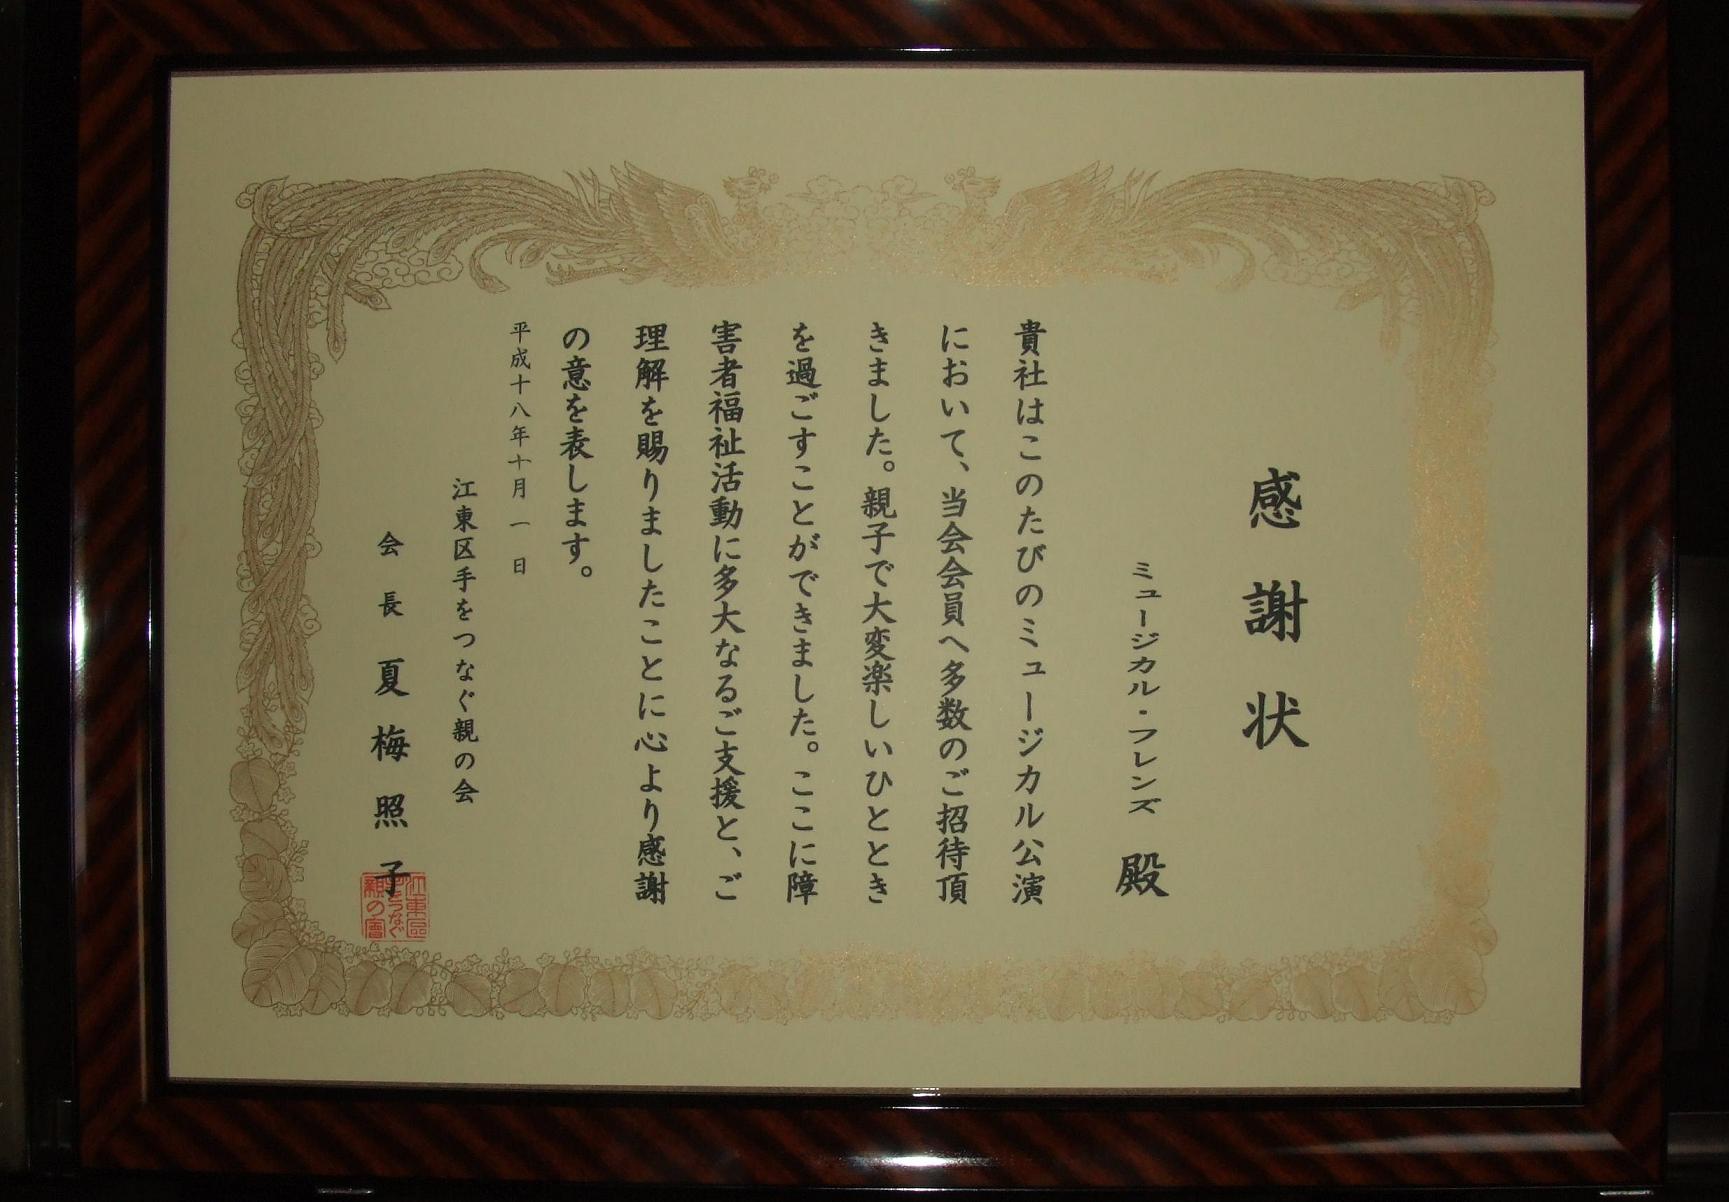 感謝状
ミュージカル・フレンズ 殿
貴社はこのたびのミュージカル公演
において、当会会員へ多数のご招待頂
きました。親子で大変楽しいひととき
を過ごすことができました。ここに障
害者福祉活動に多大なるご支援と、ご
理解を賜りましたことに心より感謝
の意を表します。
平成十八年十月一日
江東区手をつなぐ親の会
会長 夏梅照子
江東區
手をつなぐ
親の會